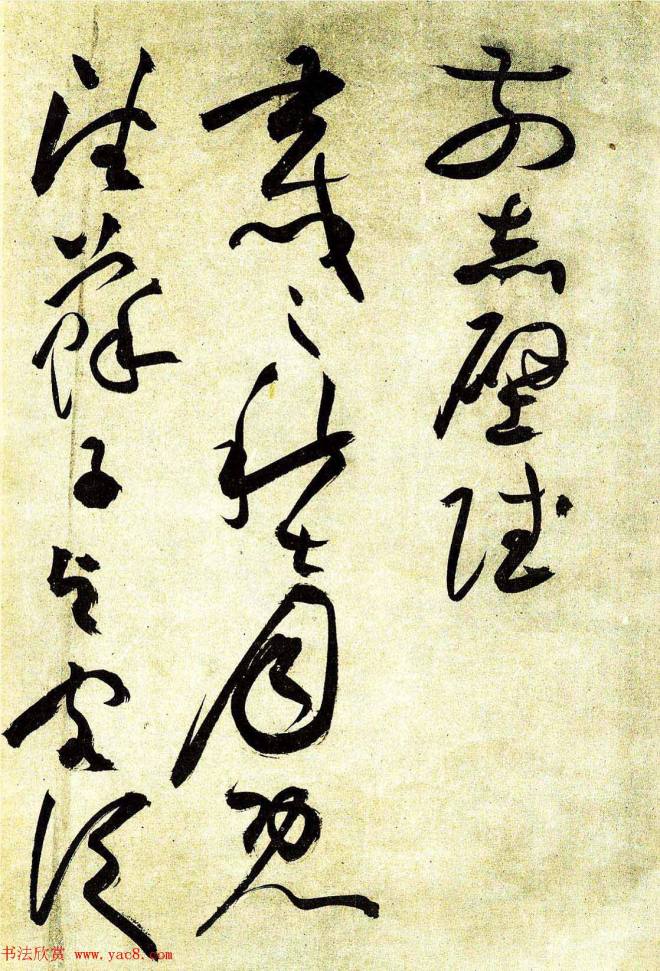 前赤壁賦
壬戌之秋七月既
望蘇子與客泛
书法欣赏 www.yac8.com